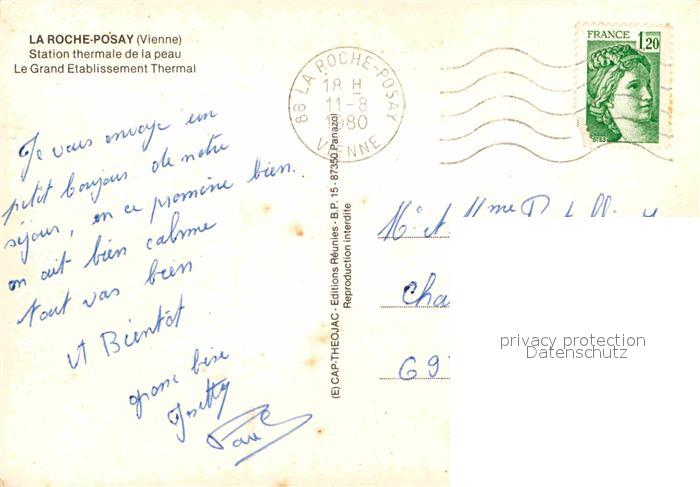 LA ROCHE-POSAY (Vienne)
Station thermale de la peau
Le Grand Etablissement Thermal
86 LA ROCHE-POSAY
18 H
11-8
1980
VIENNE
FRANCE 1,20
Je vous envoye un
petit bonjour de notre
séjour, on ce promène bien.
on ait bien calme
tout vas bien
A Bientôt
grosse bise
Josette
Paul
(E) CAP-THEOJAC - Editions Réunies - B.P. 15 - 87350 Panazol
Reproduction interdite
Mr et Mme
Cha
69
privacy protection
Datenschutz